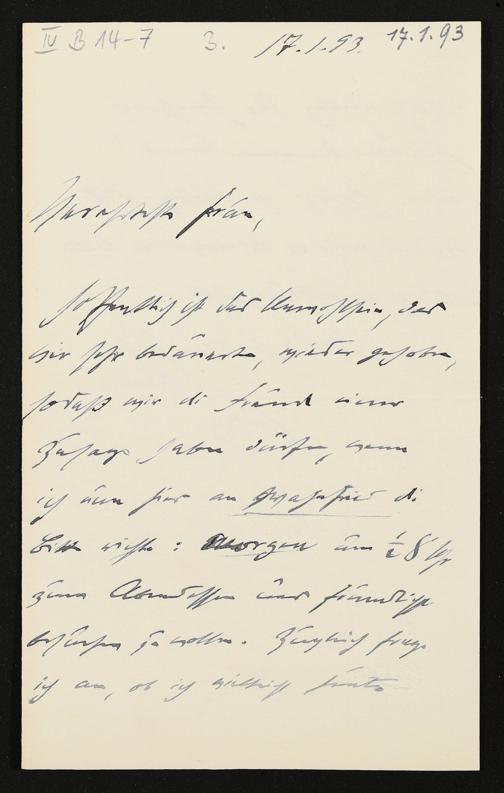 IV B 14-7 3. 17.1.93. 17.1.93
Verehrteste Frau,
hoffentlich ist das Unwohlsein, das
wir sehr bedauerten, wieder gehoben,
sodaß wir die Freude einer
Zusage haben dürfen, wenn
ich nun hier an
Bitte richte: Morgen um ½ 8 Uhr
zum Abendessen uns freundlichst
besuchen zu wollen. Zugleich frage
ich an, ob ich vielleicht heute